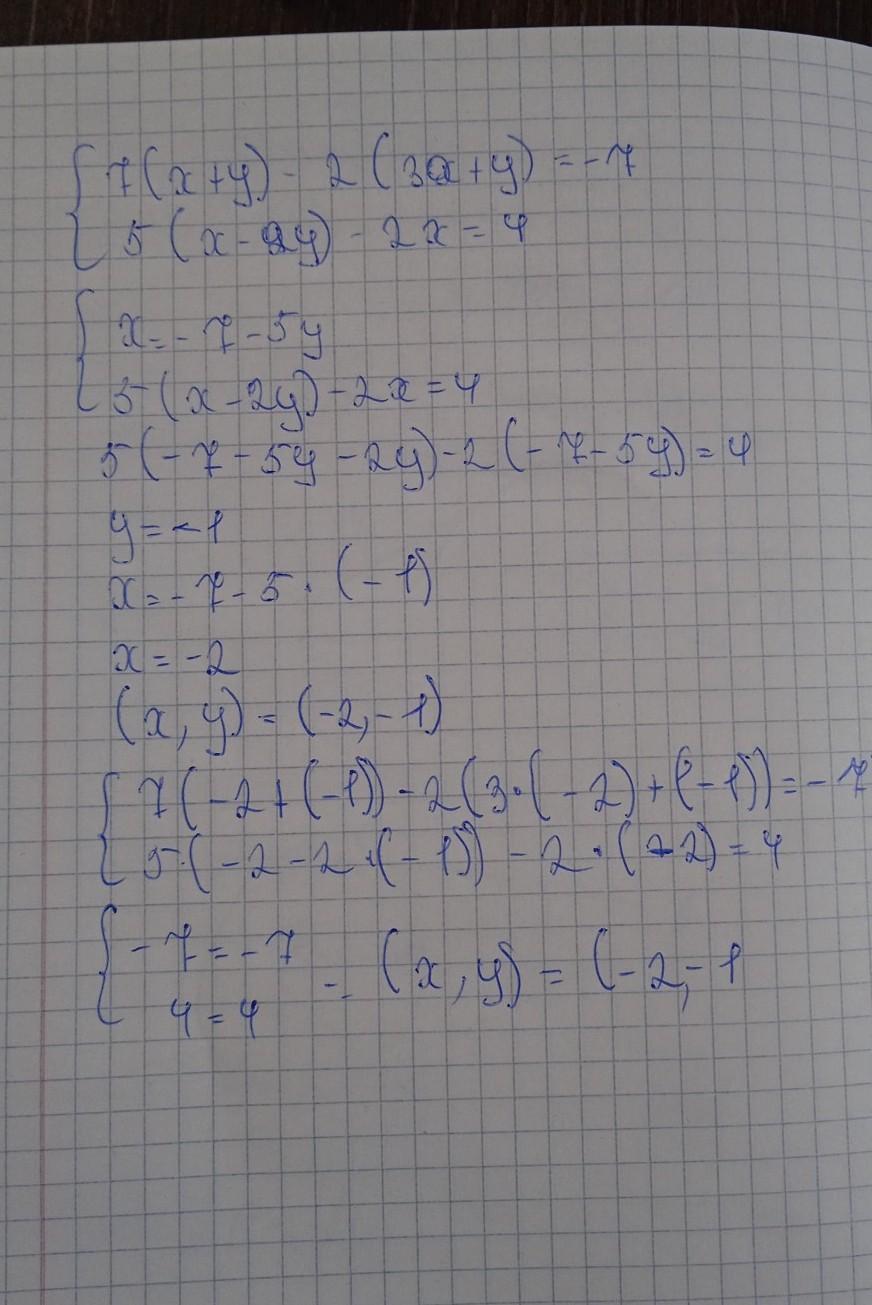 7(x+y) - 2(3x+y) = -7
5(x-2y) - 2x = 4
x = -7-5y
5(x-2y) - 2x = 4
5(-7-5y-2y) - 2(-7-5y) = 4
y = -1
x = -7-5·(-1)
x = -2
(x, y) = (-2, -1)
7(-2+(-1)) - 2(3·(-2)+(-1)) = -7
5·(-2-2·(-1)) - 2·(-2) = 4
-7 = -7
4 = 4
- (x, y) = (-2, -1